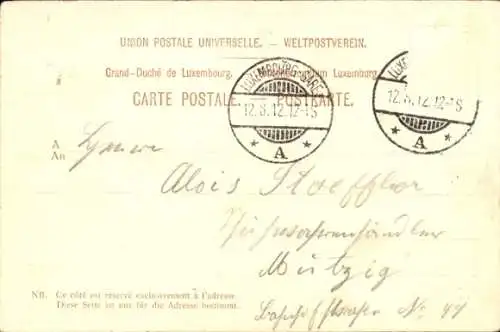 UNION POSTALE UNIVERSELLE. — WELTPOSTVEREIN.
Grand-Duché de Luxembourg. Luxemburg
CARTE POSTALE. — POSTKARTE.
LUXEMBOURG-GARE
12.8.12.12-1S
A
LUX
12.8.12.12-1S
A
A
An
Herrn
Alois Stoeffler
Mutzig
Bahnhofstrasse No 44
NB. Ce côté est réservé exclusivement à l'adresse.
Diese Seite ist nur für die Adresse bestimmt.